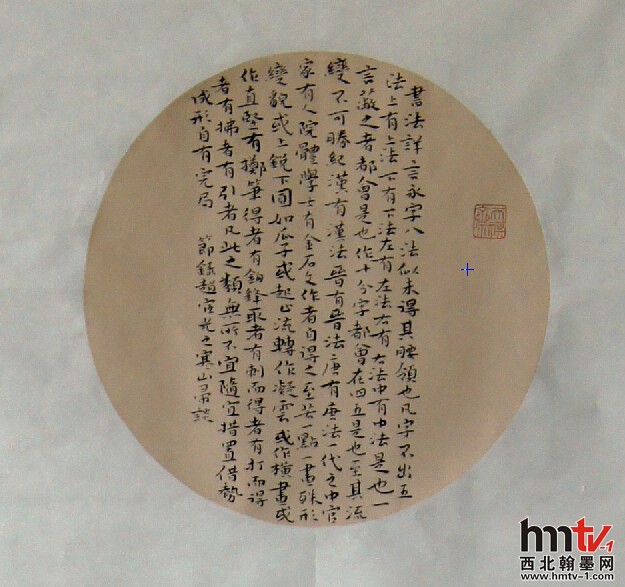 書法詳言永字八法似未得其腰領也凡字不出五
法上有上法下有下法左有左法右有右法中有中法是也一
言蔽之者都會是也作十分字都會在四五是也至其流
變不可勝紀漢有漢法晉有晉法唐有唐法一代之中官
家有人院體學士有金石文作者自得之至若一點一畫殊形
變貌或上銳下圓如瓜子或起止流轉作凝雲或作橫畫或
作直豎有擲筆得者有鉤鋒取者有刺而得者有打而得
者有拂者有引者凡此之類無所不宜隨宜措置借勢
成形自有完局
節錄趙宧光之寒山帚談
hmtv-1
西北翰墨网
www.hmtv-1.com